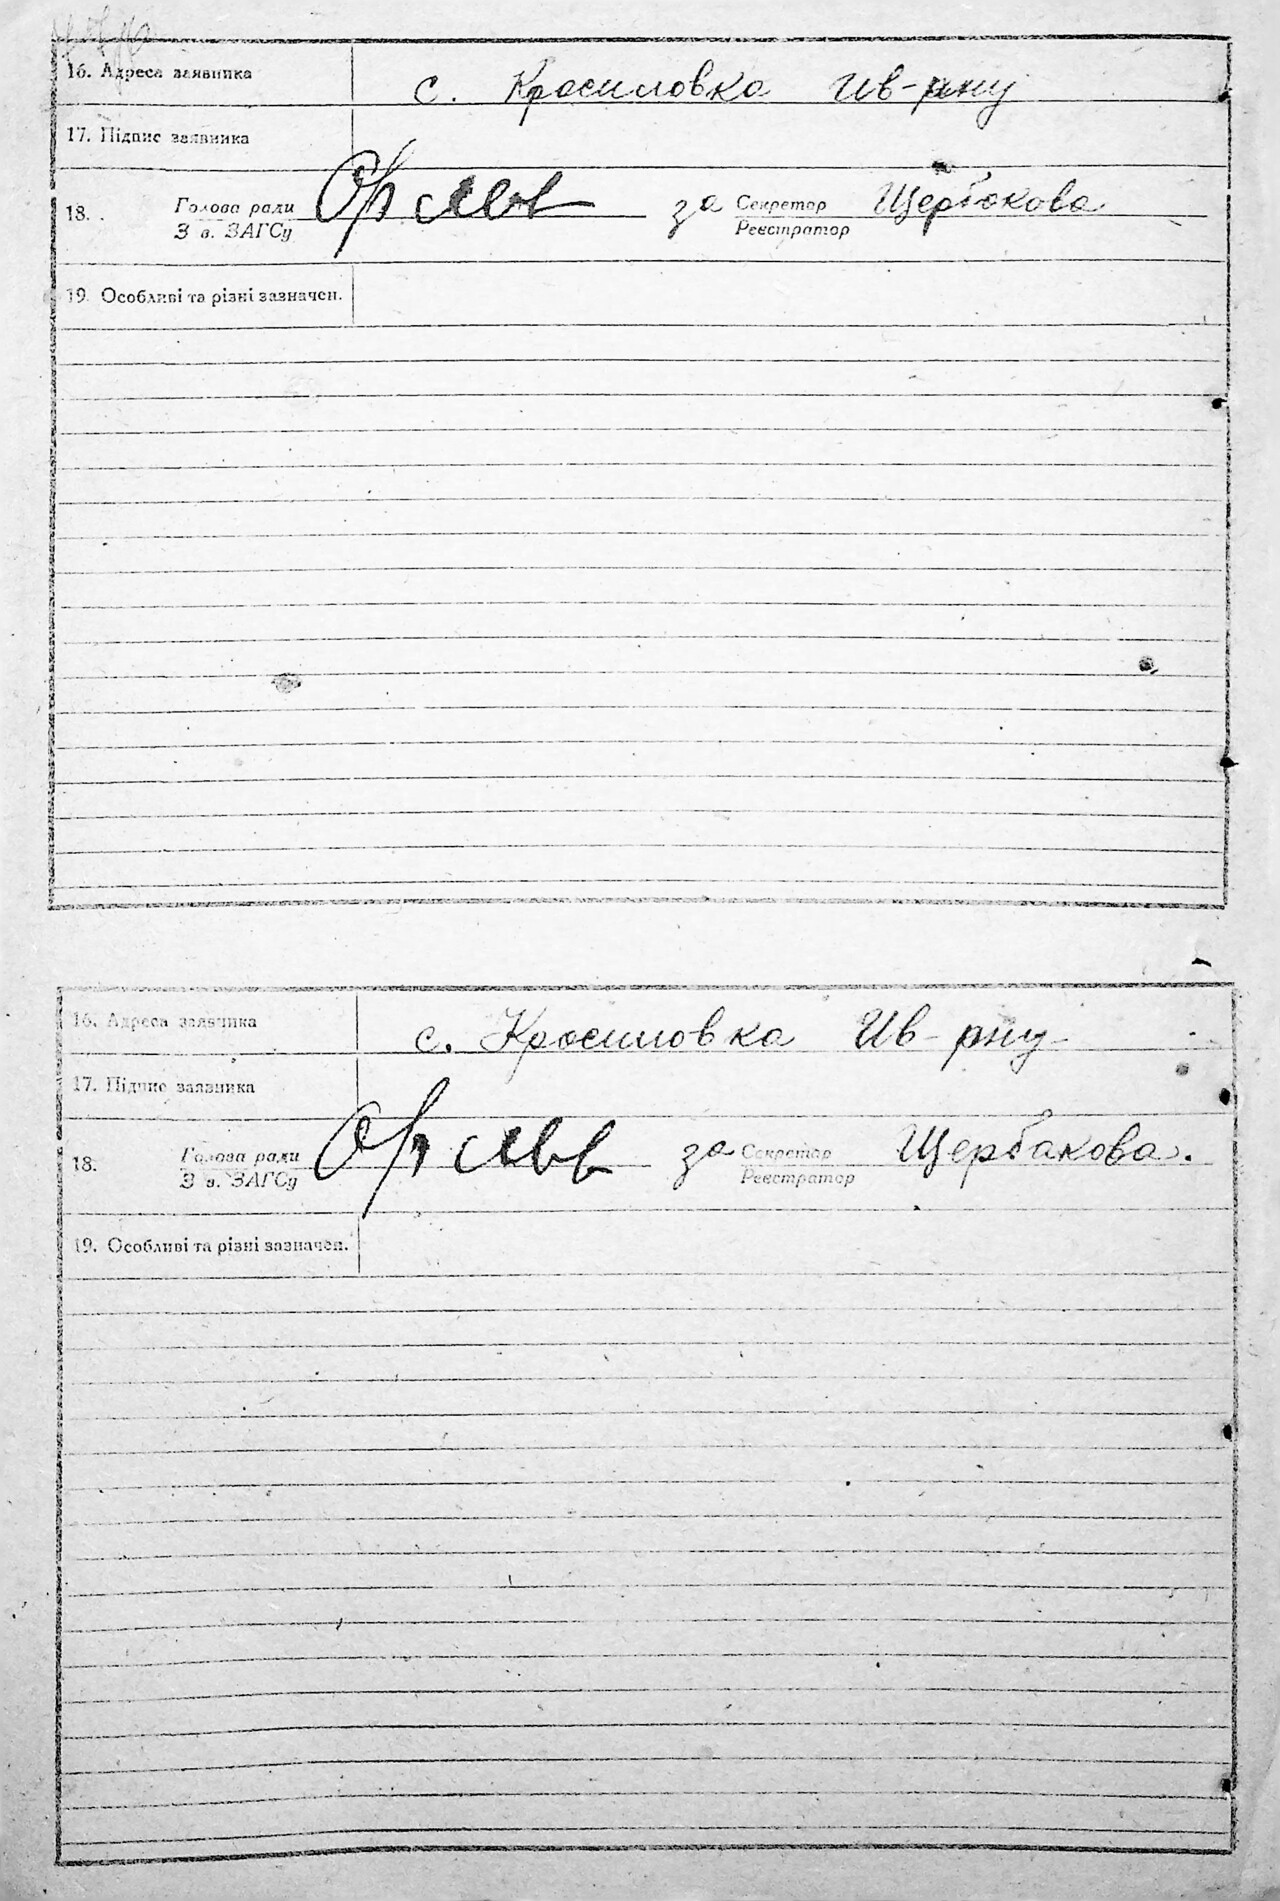 16. Адреса заявника с. Красиловка Ив-рну
17. Підпис заявника
18. Голова ради за Секретар Щербакова
З в. ЗАГСу Реєстратор
19. Особливі та різні зазначен.
16. Адреса заявника с. Красиловка Ив-рну
17. Підпис заявника
18. Голова ради за Секретар Щербакова.
З в. ЗАГСу Реєстратор
19. Особливі та різні зазначен.